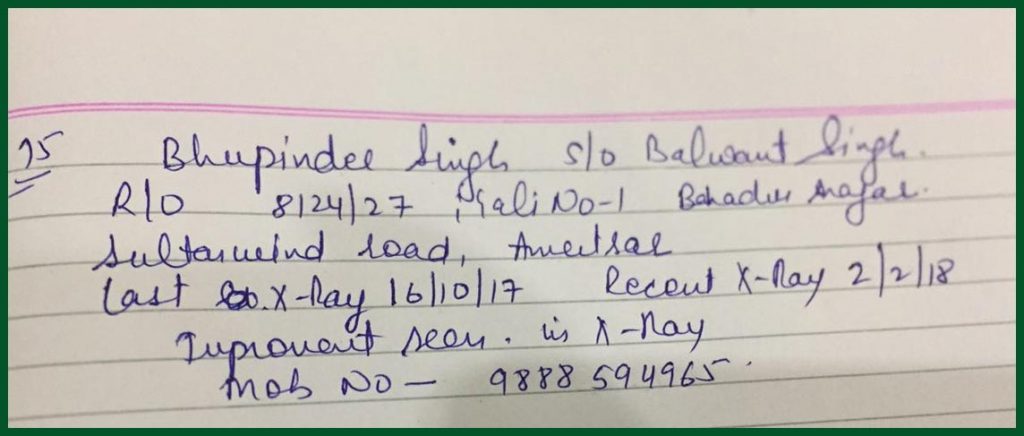 75 Bhupinder Singh S/o Balwant Singh.
R/O 8124/27, Gali No-1 Bahadur Nagar.
Sultanwind road, Amritsar
Last X-Ray 16/10/17 Recent X-Ray 2/2/18
Improvent seen. in X-Ray
Mob NO - 9888594965.